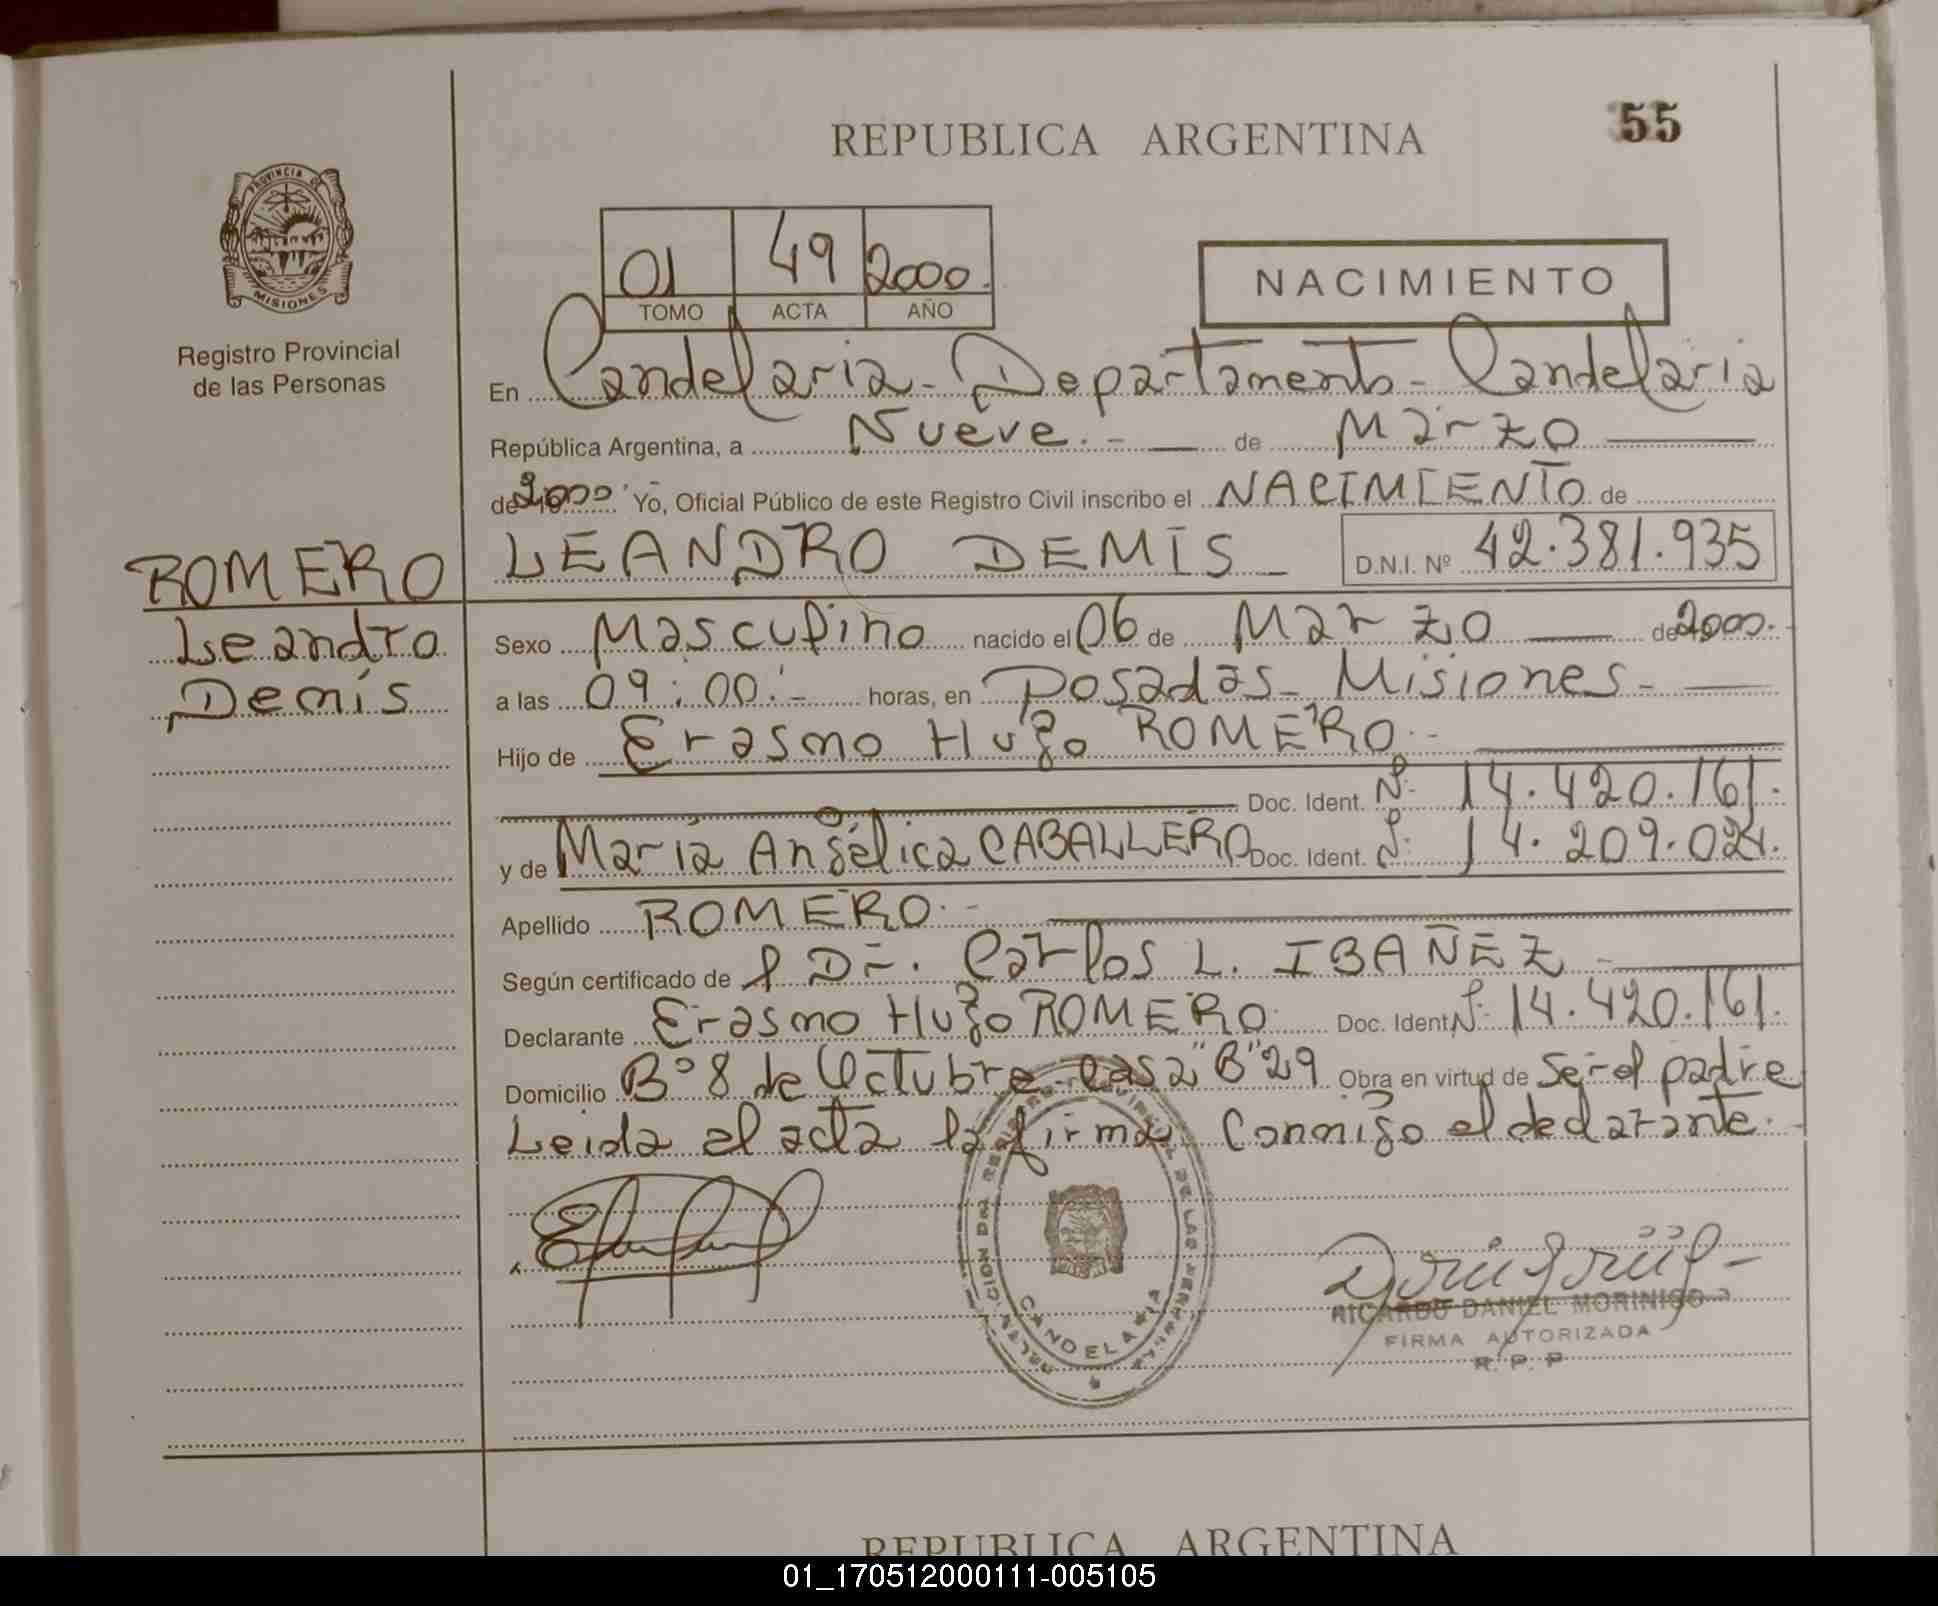 55
REPUBLICA ARGENTINA
PROVINCIA DE
MISIONES
Registro Provincial
de las Personas
01 49 2000
TOMO ACTA AÑO
NACIMIENTO
En Candelaria - Departamento - Candelaria
República Argentina, a Nueve.- de Marzo
de 2000 Yo, Oficial Público de este Registro Civil inscribo el NACIMIENTO de
ROMERO
Leandro
Demis
LEANDRO DEMIS D.N.I. Nº 42.381.935
Sexo Masculino nacido el 06 de Marzo de 2000.
a las 09:00.- horas, en Posadas - Misiones -
Hijo de Erasmo Hugo ROMERO.-
Doc. Ident. Nº 14.420.161.
y de María Angélica CABALLERO Doc. Ident. Nº 14.209.024.
Apellido ROMERO.-
Según certificado de l Dr. Carlos L. IBAÑEZ -
Declarante Erasmo Hugo ROMERO. Doc. Ident. Nº 14.420.161.
Domicilio Bº 8 de Octubre - casa "B" 29 Obra en virtud de Ser el padre
Leida el acta la firma Conmigo el declarante.
DE LAS PERSONAS
CANDELARIA
RICARDO DANIEL MORINIGO
FIRMA AUTORIZADA
R. P. P
REPUBLICA ARGENTINA
01_170512000111-005105